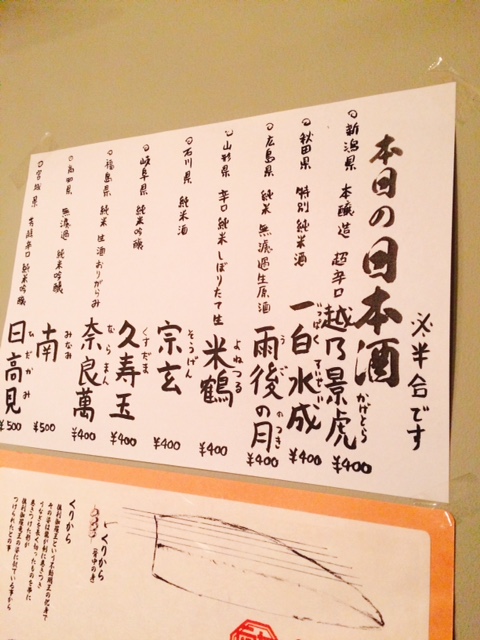 本日の日本酒
※半合です
新潟県 本醸造 超辛口
越乃景虎
かげとら
¥400
秋田県 特別純米酒
一白水成
いっぱくすいせい
¥400
広島県 純米 無濾過生原酒
雨後の月
うごのつき
¥400
山形県 辛口純米 しぼりたて生
米鶴
よねつる
¥400
石川県 純米酒
宗玄
そうげん
¥400
岐阜県 純米吟醸
久寿玉
くすだま
¥400
福島県 純米 生酒 おりがらみ
奈良萬
ならまん
¥400
高知県 無濾過 純米吟醸
南
みなみ
¥500
宮城県 超辛口 純米吟醸
日高見
ひたかみ
¥500
くりから
くりから
背中の身